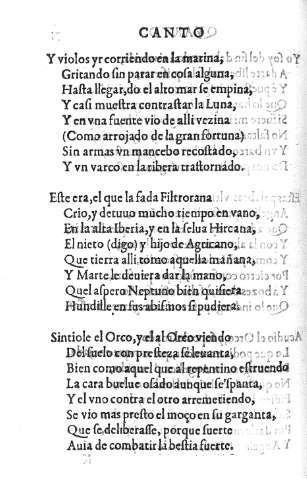 CANTO
Y violos yr corriendo en la marina,
Gritando sin parar en cosa alguna,
Hasta llegar, do el alto mar se empina,
Y casi muestra contrastar la Luna,
Y en vna fuente vio de alli vezina
(Como arrojado de la gran fortuna)
Sin armas vn mancebo recostado,
Y vn varco en la ribera trastornado.
Este era, el que la fada Filtrorana
Crio, y detuuo mucho tiempo en vano,
En la alta Iberia, y en la selua Hircana,
El nieto (digo) y hijo de Agricano,
Que tierra alli tomo aquella mañana,
Y Marte le deuiera dar la mano,
Quel aspero Neptuno bien quisiera
Hundille en sus abismos si pudiera.
Sintiole el Orco, y el al Orco viendo
Del suelo con presteza se leuanta,
Bien como aquel que al repentino estruendo
La cara buelue osado aunque s'espanta,
Y el vno contra el otro arremetiendo,
Se vio mas presto el moço en su garganta,
Que se deliberasse, porque suerte
Auia de combatir la bestia fuerte.